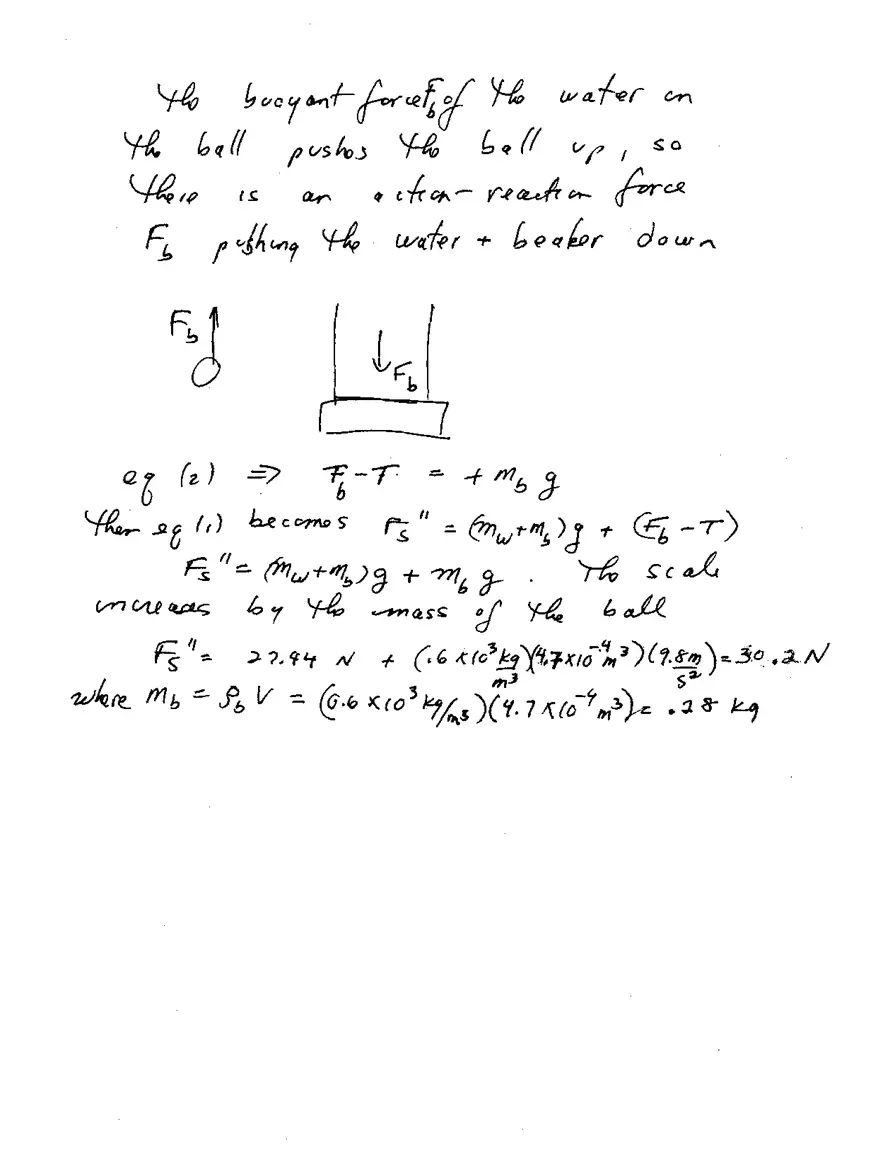 The buoyant force F_b of the water on
the ball pushes the ball up, so
there is an action-reaction force
F_b pushing the water + beaker down
F_b
F_b
eq (2) ⇒ F_b - T = + m_b g
then eq (1) becomes F_s'' = (m_w + m_b)g + (F_b - T)
F_s'' = (m_w + m_b)g + m_b g . The scale
increases by the mass of the ball
F_s'' = 27.44 N + (.6 x 10³ kg/m³)(4.7 x 10⁻⁴ m³)(9.8 m/s²) = 30.2 N
where m_b = ρ_b V = (0.6 x 10³ kg/m³)(4.7 x 10⁻⁴ m³) = .28 kg